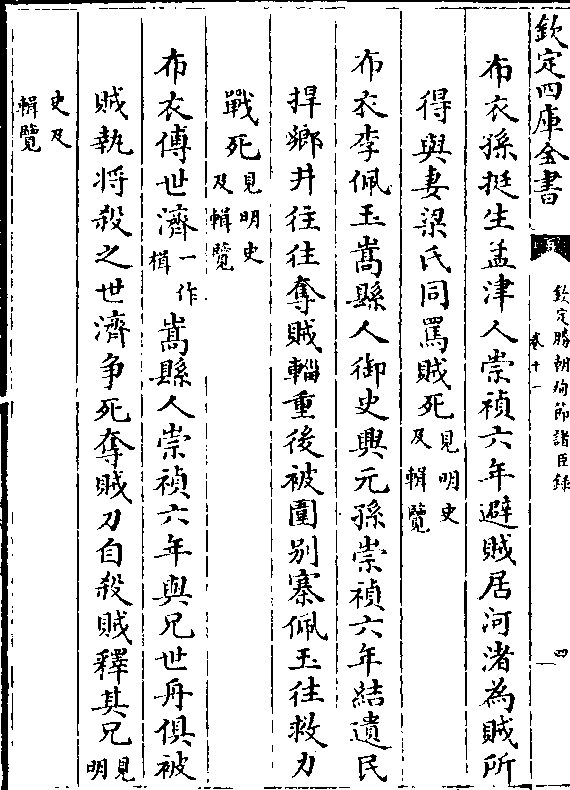 欽定四庫全書
欽定勝朝殉節諸臣録
卷十一
四
布衣孫挺生孟津人崇禎六年避賊居河渚為賊所
得與妻梁氏同罵賊死見明史及輯覽
布衣李佩玉嵩縣人御史興元孫崇禎六年結遺民
捍鄉井往往奪賊輜重後被圍别寨佩玉往救力
戰死見明史及輯覽
布衣傅世濟一作楫嵩縣人崇禎六年與兄世舟俱被
賊執将殺之世濟争死奪賊刀自殺賊釋其兄見明
史及輯覽